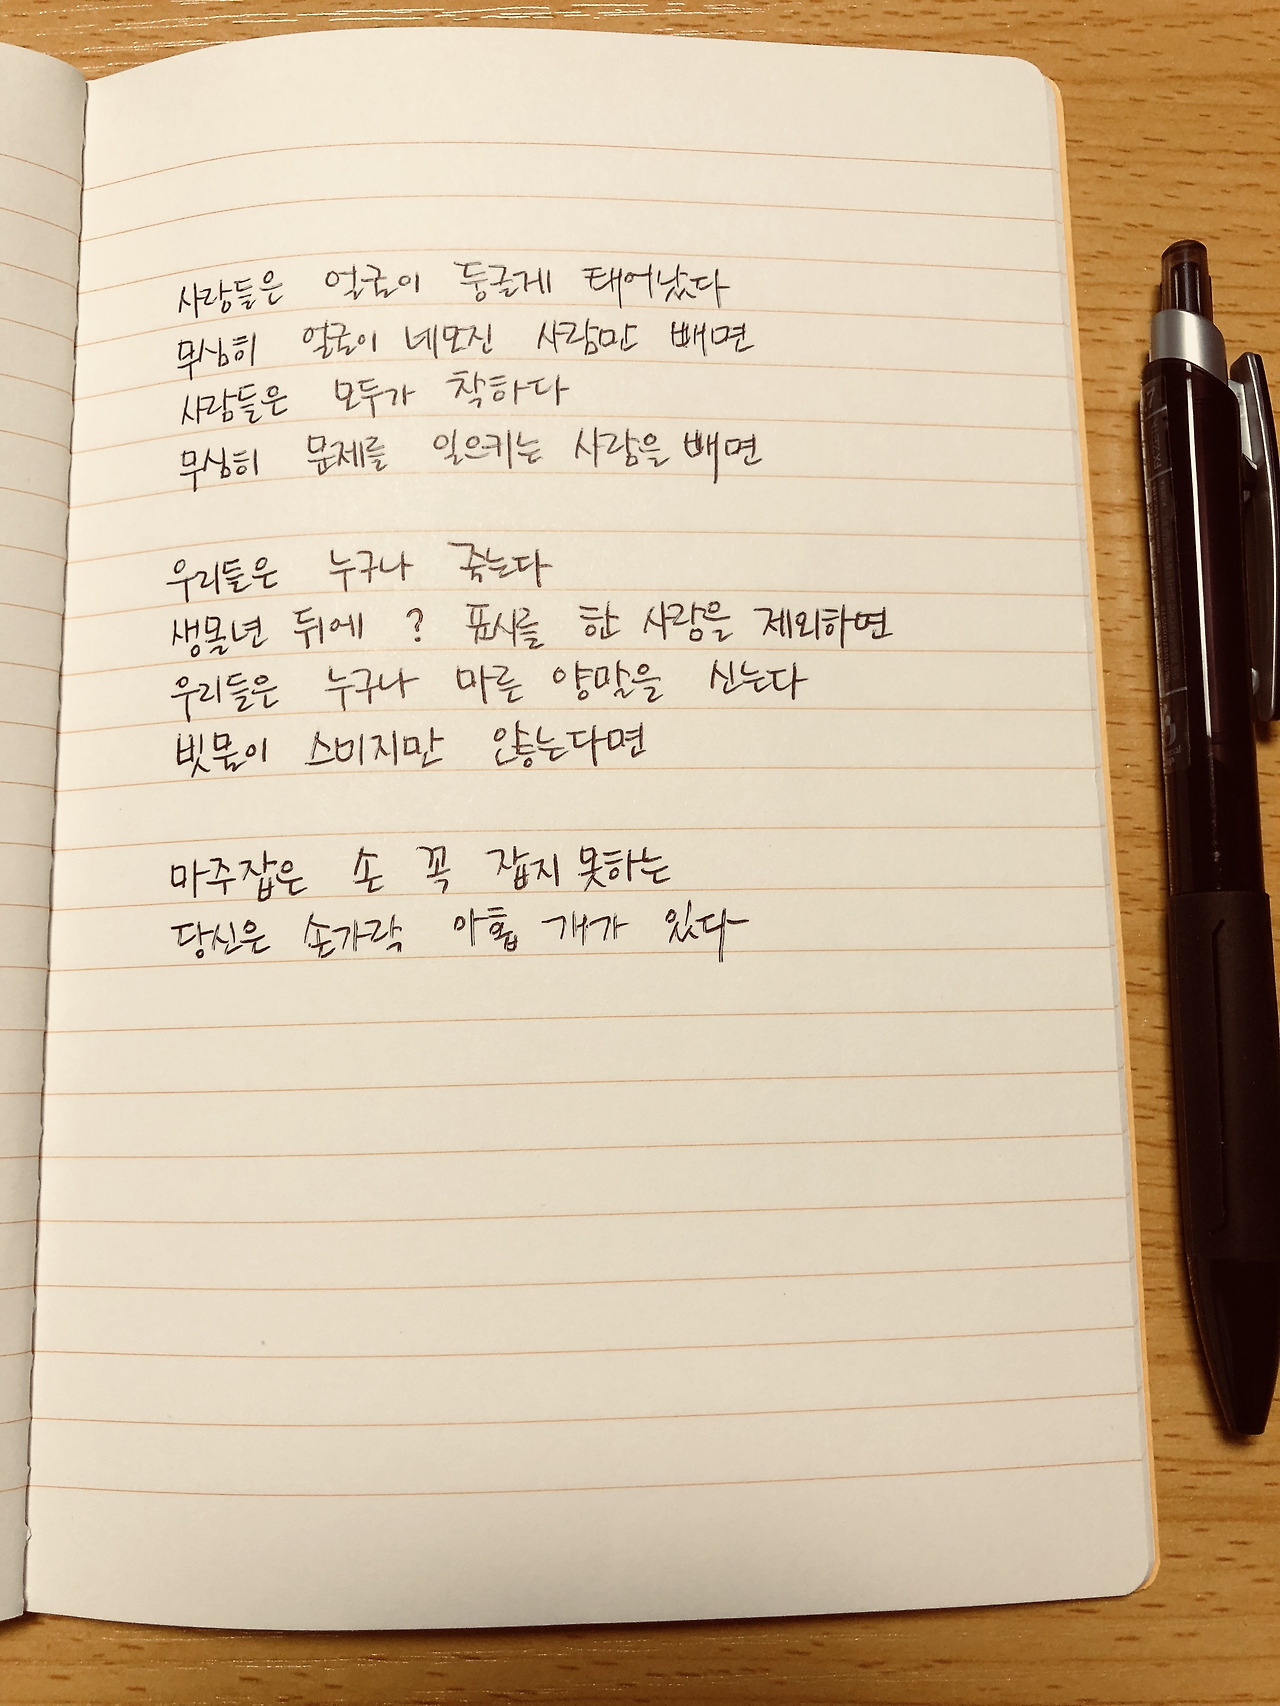 사람들은 얼굴이 둥글게 태어났다
무심히 얼굴이 네모진 사람만 빼면
사람들은 모두가 착하다
무심히 문제를 일으키는 사람을 빼면
우리들은 누구나 죽는다
생몰년 뒤에 ? 표시를 한 사람을 제외하면
우리들은 누구나 마른 양말을 신는다
빗물이 스미지만 않는다면
마주잡은 손 꼭 잡지 못하는
당신은 손가락 아홉 개가 있다